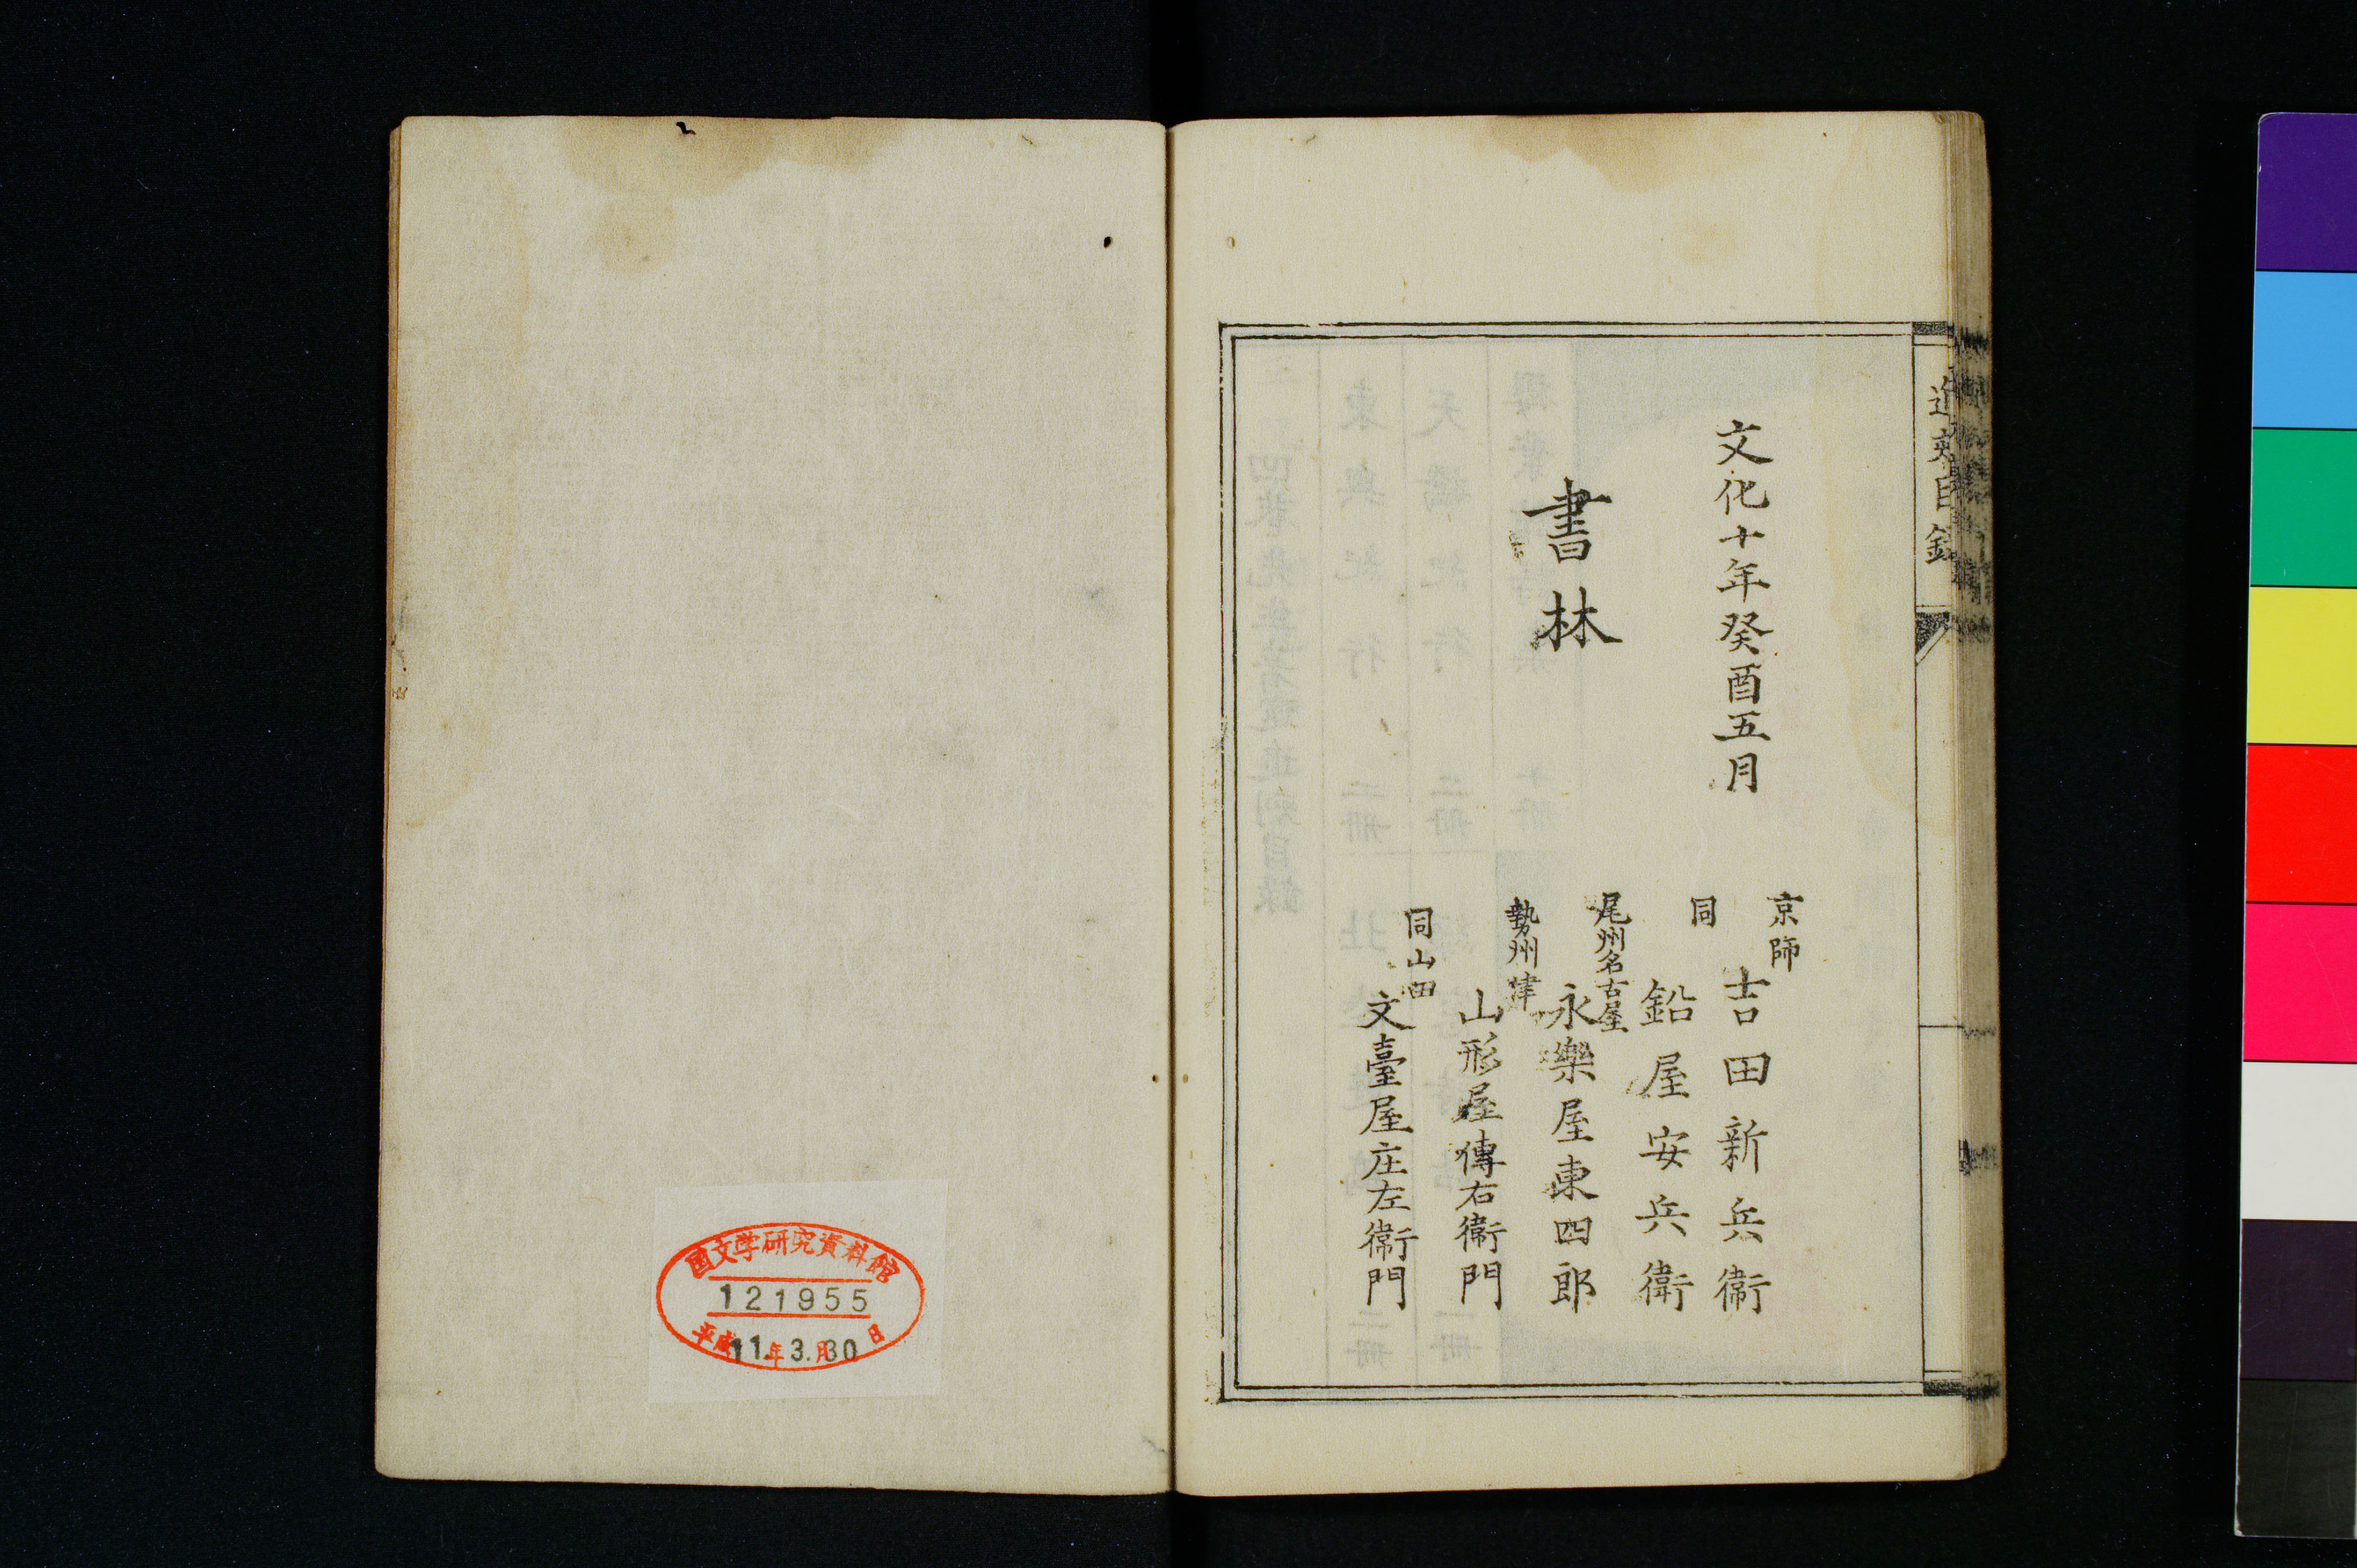 文化十年癸酉五月
書林
京師
吉田新兵衛
同
鉛屋安兵衛
尾州名古屋
永樂屋東四郎
勢州津
山形屋傳右衛門
同山田
文臺屋庄左衛門
国文学研究資料館
121955
平成11年3.月30日